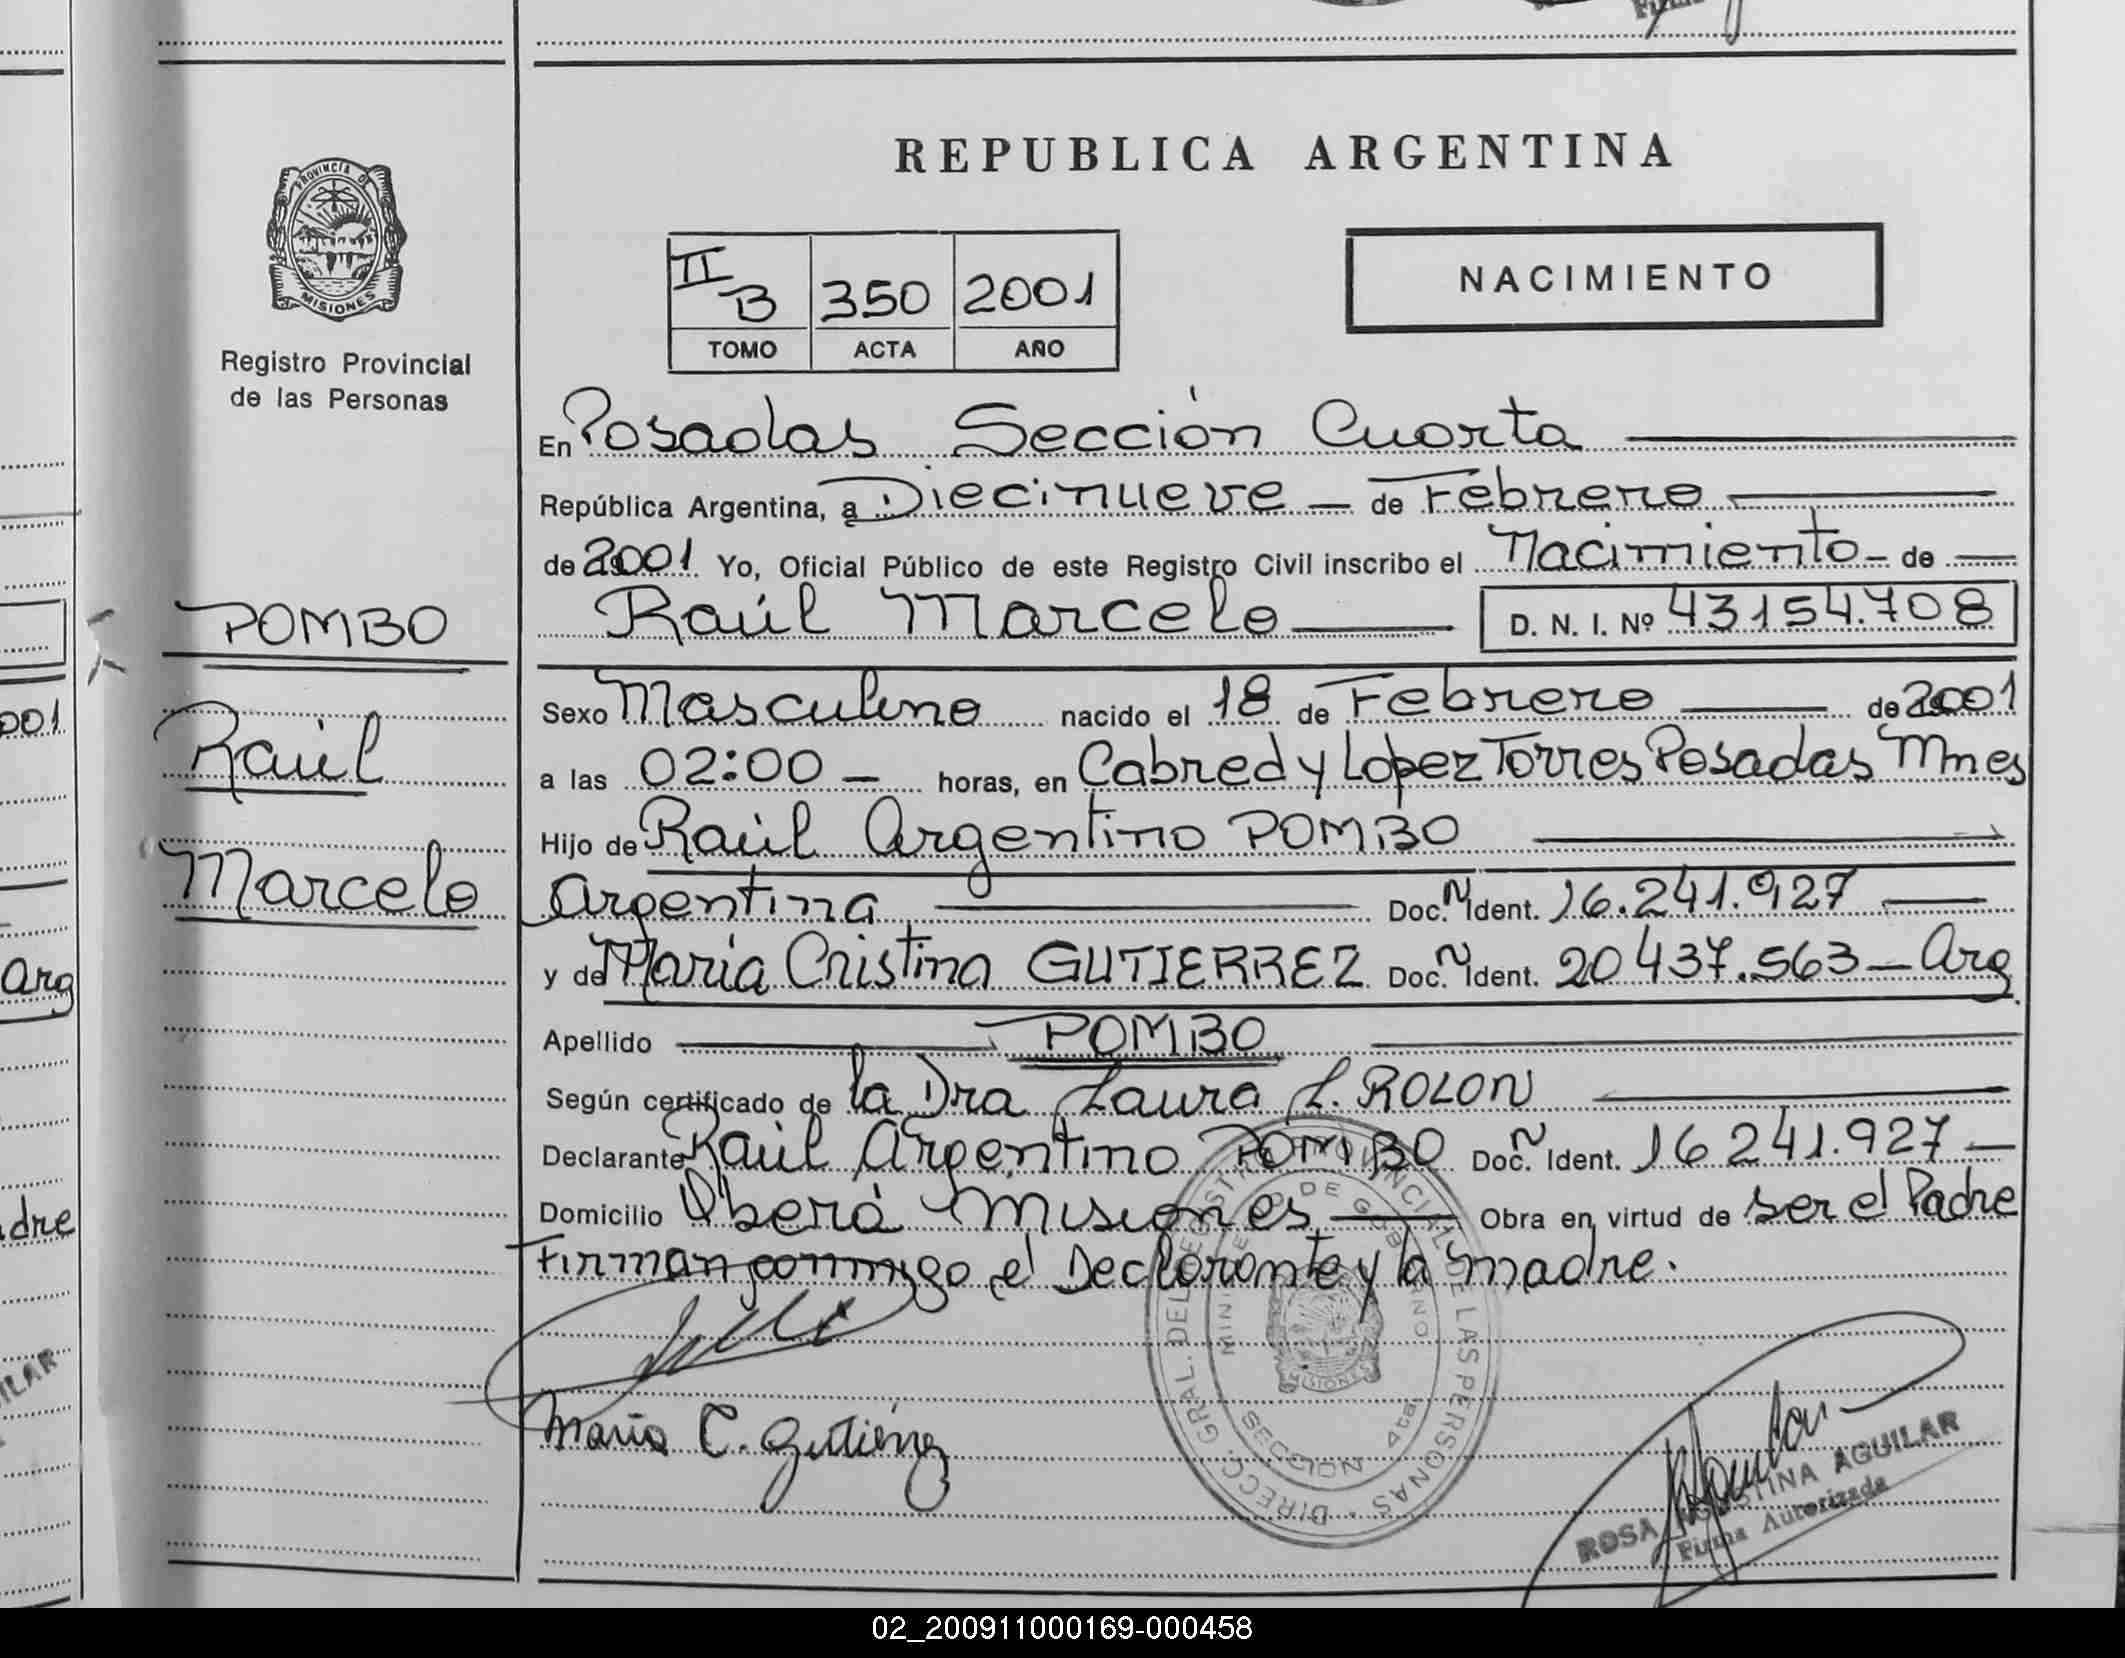 REPUBLICA ARGENTINA
PROVINCIA DE
MISIONES
Registro Provincial
de las Personas
II B 350 2001
TOMO ACTA AÑO
NACIMIENTO
En Posadas Sección Cuarta
República Argentina, a Diecinueve - de Febrero
de 2001 Yo, Oficial Público de este Registro Civil inscribo el Nacimiento - de
Raúl Marcelo D. N. I. Nº 43154.708
POMBO
Raúl
Marcelo
Sexo Masculino nacido el 18 de Febrero de 2001
a las 02:00 - horas, en Cabred y Lopez Torres Posadas Mnes
Hijo de Raúl Argentino POMBO
Argentina Doc. Ident. 16.241.927
y de María Cristina GUTIERREZ Doc. Ident. 20437.563 - Arg
Apellido POMBO
Según certificado de la Dra Laura L. ROLON
Declarante Raúl Argentino POMBO Doc. Ident. 16241.927 -
Domicilio Oberá Misiones Obra en virtud de ser el Padre
Firman conmigo el Declarante y la madre.
Maria C. Gutiérrez
DIRECC. GRAL. DEL REGISTRO PROVINCIAL DE LAS PERSONAS
MINISTERIO DE GOBIERNO
SECCION 4ta
MISIONES
ROSA AGUSTINA AGUILAR
Firma Autorizada
001
Arg
adre
ILAR
02_200911000169-000458